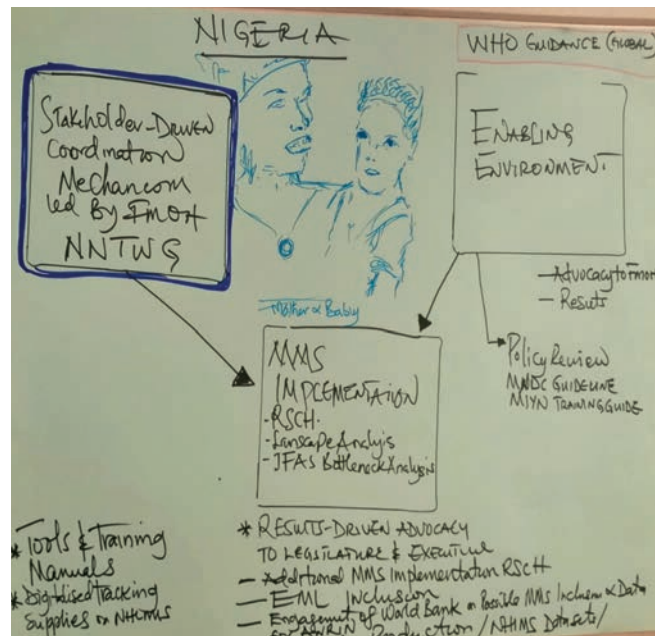 NIGERIA
WHO GUIDANCE (GLOBAL)
Stakeholder-Driven
Coordination
Mechancom
led By FMOH
NNTWG
ENABLING
ENVIRONMENT
- Advocacy to Fmoh
- Results
Policy Review
MNDC GUIDELINE
MIYN TRAINING GUIDE
Mother & Baby
MMS
IMPLEMENTATION
- RSCH.
- Lanscape Analyis
- IFAS Bottleneck Analysis
* Tools & Training
Manuals
* Digitised Tracking
Supplies on NHLMIS
* RESULTS-DRIVEN ADVOCACY
TO LEGISLATURE & EXECUTIVE
- Additional MMS Implementation RSCH
- EML Inclusion
- Engagement of World Bank on Possible MMS Inclusion & Data
Production / NHMS Datasets/